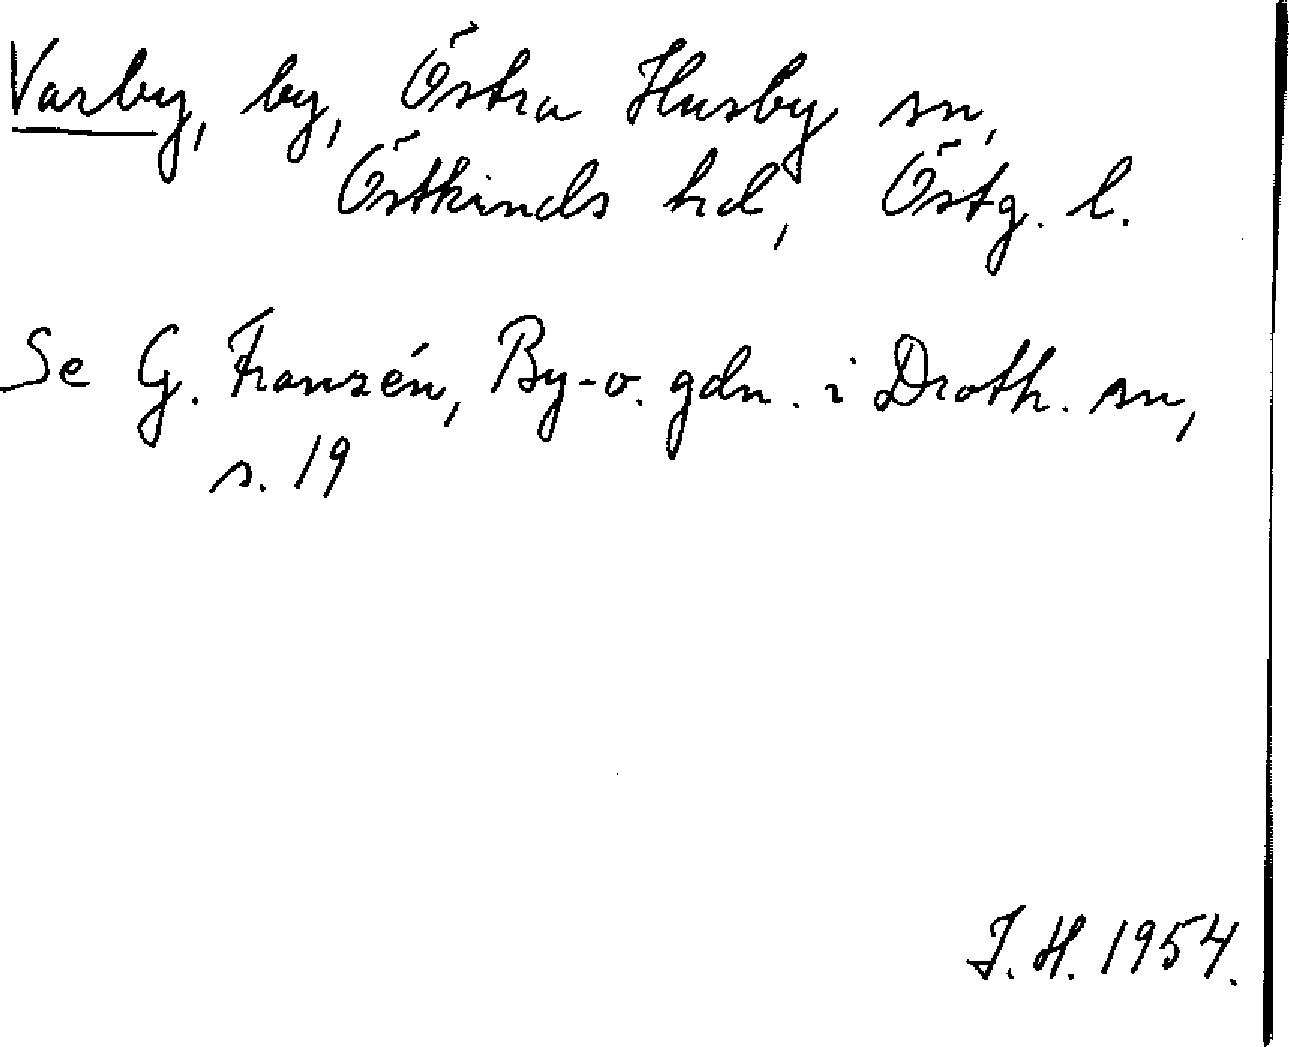 Varby, by, Östra Husby sn,
Östkinds hd, Östg. l.
Se G. Franzén, By- o. gdn. i Droth. sn,
s. 19
J. H. 1954.